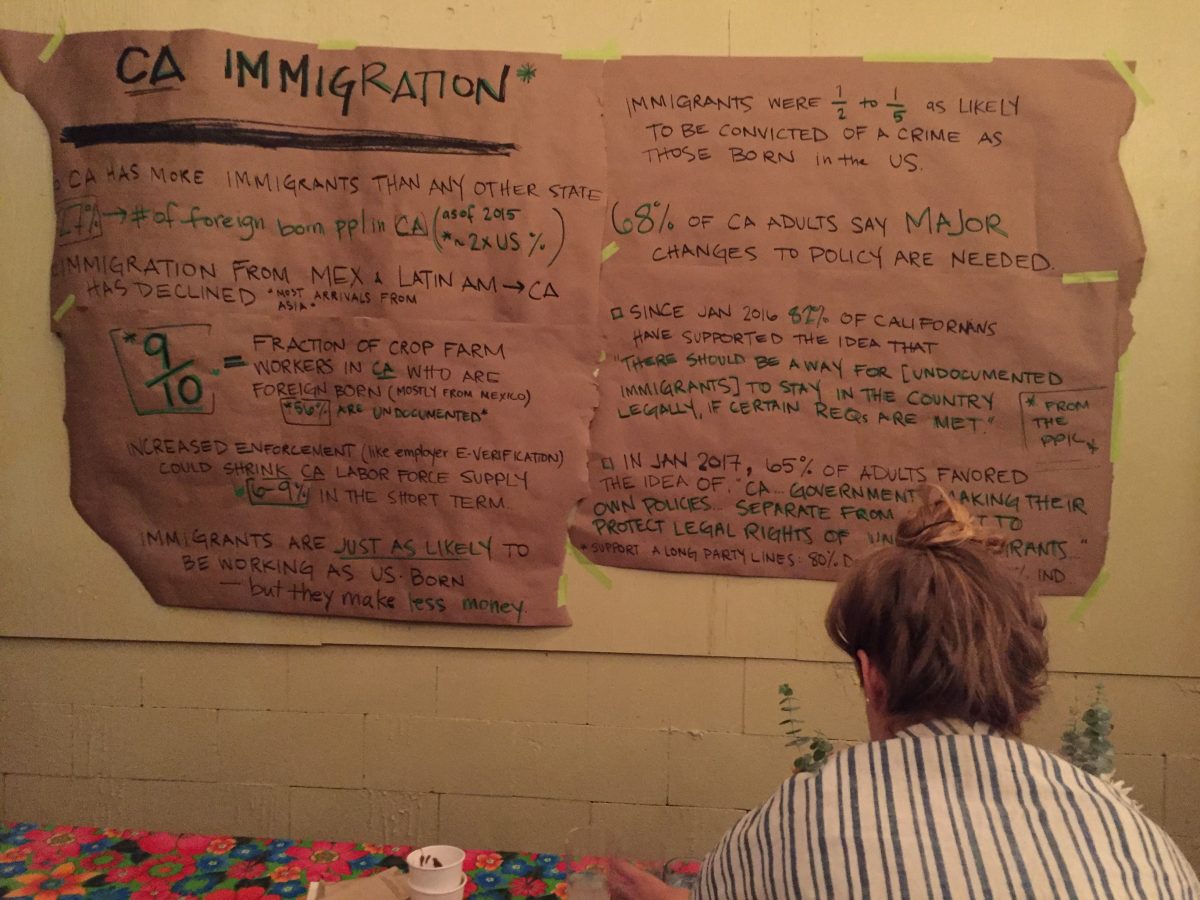 CA IMMIGRATION*
CA HAS MORE IMMIGRANTS THAN ANY OTHER STATE
27% → # of foreign born ppl in CA (as of 2015
*~2x US %)
IMMIGRATION FROM MEX & LATIN AM → CA
HAS DECLINED *MOST ARRIVALS FROM
ASIA*
*9/10 = FRACTION OF CROP FARM
WORKERS IN CA WHO ARE
FOREIGN BORN (MOSTLY FROM MEXICO)
*56% ARE UNDOCUMENTED*
INCREASED ENFORCEMENT (like employer E-VERIFICATION)
COULD SHRINK CA LABOR FORCE SUPPLY
6-9% IN THE SHORT TERM.
IMMIGRANTS ARE JUST AS LIKELY TO
BE WORKING AS US. BORN
— but they make less money.
IMMIGRANTS WERE 1/2 to 1/5 as LIKELY
TO BE CONVICTED OF A CRIME AS
THOSE BORN in the US.
68% OF CA ADULTS SAY MAJOR
CHANGES TO POLICY ARE NEEDED.
□ SINCE JAN 2016 82% OF CALIFORNANS
HAVE SUPPORTED THE IDEA THAT
"THERE SHOULD BE A WAY FOR [UNDOCUMENTED
IMMIGRANTS] TO STAY IN THE COUNTRY
LEGALLY, IF CERTAIN REQs ARE MET."
* FROM
THE
PPIC *
□ IN JAN 2017, 65% OF ADULTS FAVORED
THE IDEA OF "CA... GOVERNMENT MAKING THEIR
OWN POLICIES... SEPARATE FROM TO
PROTECT LEGAL RIGHTS OF
*SUPPORT A LONG PARTY LINES: 80% D % IND